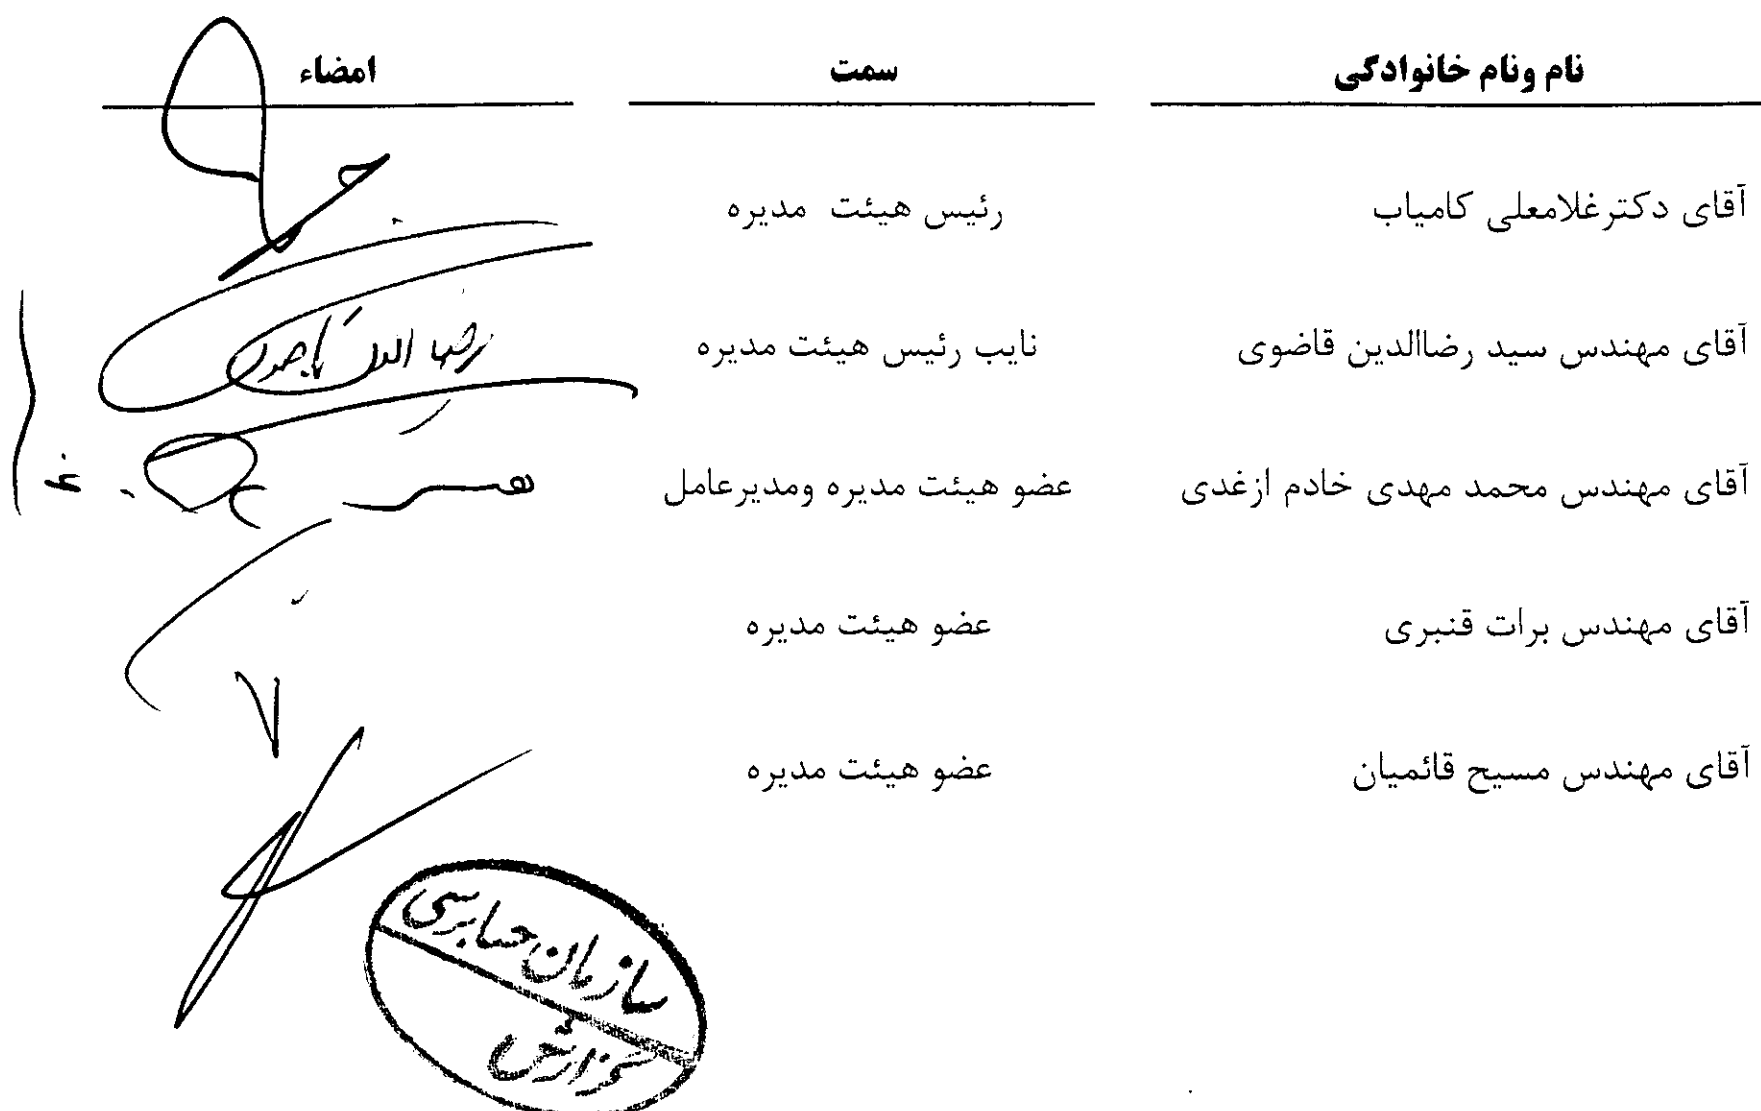 نام ونام خانوادگی سمت امضاء
آقای دکترغلامعلی کامیاب رئیس هیئت مدیره
آقای مهندس سید رضاالدین قاضوی نایب رئیس هیئت مدیره
آقای مهندس محمد مهدی خادم ازغدی عضو هیئت مدیره ومدیرعامل
آقای مهندس برات قنبری عضو هیئت مدیره
آقای مهندس مسیح قائمیان عضو هیئت مدیره
سازمان حسابرسی
گزارش